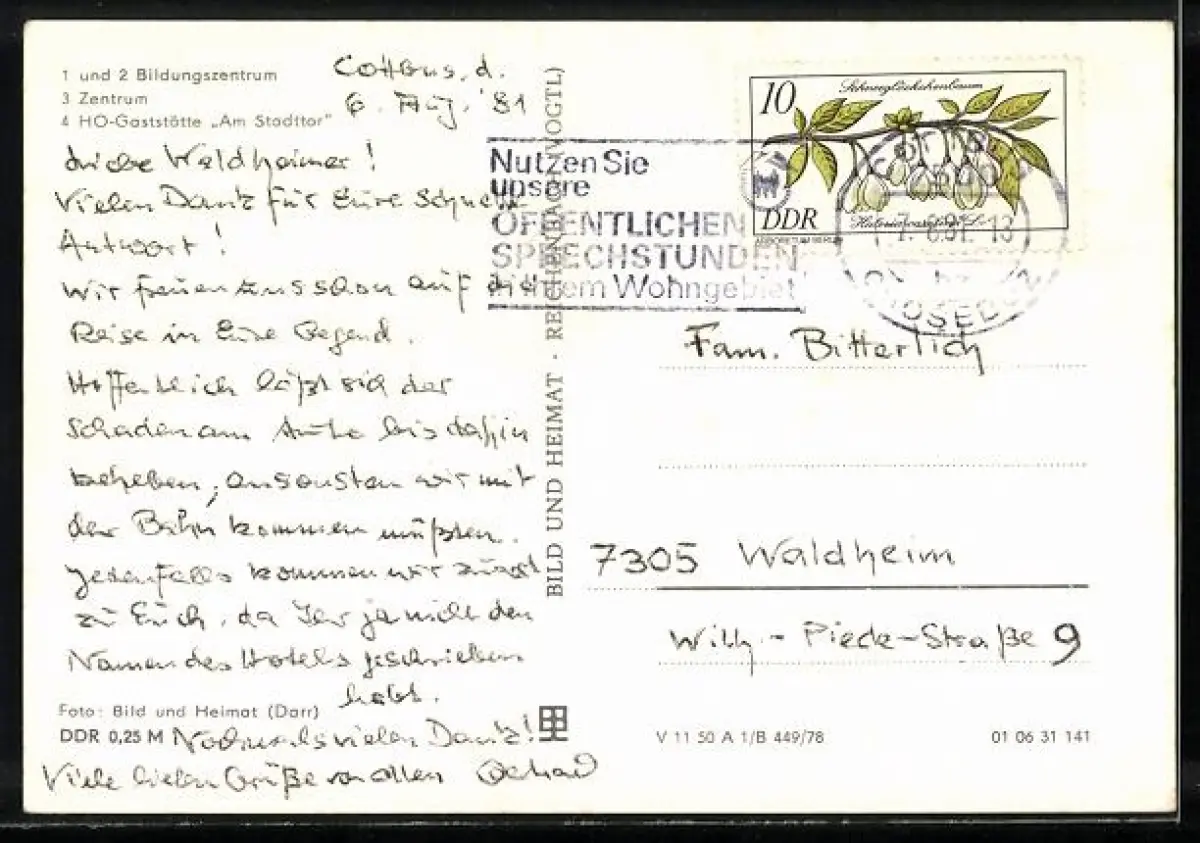 1 und 2 Bildungszentrum
3 Zentrum
4 HO-Gaststätte „Am Stadttor"
Cottbus, d.
6. Aug. '81
Liebe Waldheimer!
Vielen Dank für Eure schnelle
Antwort!
Wir freuen uns schon auf die
Reise in Eure Gegend.
Hoffentlich läßt sich der
Schaden am Auto bis dahin
beheben, ansonsten wir mit
der Bahn kommen müßten.
Jedenfalls kommen wir zuerst
zu Euch, da Ihr ja nicht den
Namen des Hotels geschrieben
habt.
Nochmals vielen Dank!
Viele lieben Grüße von allen
Foto: Bild und Heimat (Darr)
DDR 0,25 M
BILD UND HEIMAT · REICHENBACH (VOGTL)
Nutzen Sie
unsere
ÖFFENTLICHEN
SPRECHSTUNDEN
in Ihrem Wohngebiet
10
Schneeglöckchenbaum
DDR
ARBORETUM BERLIN
Fam. Bitterlich
7305 Waldheim
Willy-Pieck-Straße 9
V 11 50 A 1/B 449/78
01 06 31 141